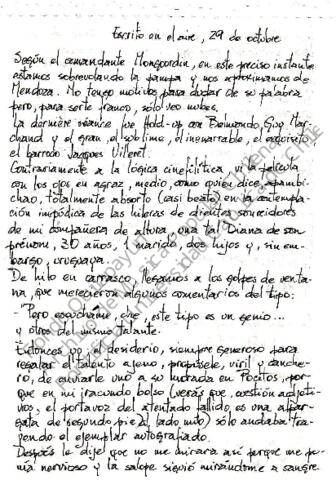 Escrito en el aire, 29 de octubre
Según el comandante Mongordin, en este preciso instante
estamos sobrevolando la pampa y nos aproximamos de
Mendoza. No tengo motivos para dudar de su palabra
pero, para serte franco, sólo veo nubes.
La dernière séance fue Hold-up con Belmondo, Guy Mar-
chand y el gran, el sublime, el inenarrable, el exquisito
el barroco Jacques Villeret.
Contrariamente a la lógica cinefilítica, vi la película
con los ojos en agraz, medio, como quien dice, apambi-
chao, totalmente absorto (casi beato) en la contempla-
ción impúdica de las hileras de dientes sonreidores
de mi compañera de altura, una tal Diana de son
prénom, 30 años, 1 marido, dos hijos y, sin em-
bargo, uruguaya.
De hito en carrasco, llegamos a los golpes de venta-
na, que merecieron algunos comentarios del tipo:
"Pero escuchame, che, este tipo es un genio..."
y otros del mismo talante.
Entonces yo, el desiderio, siempre generoso para
regalar el talento ajeno, propúsele, viril y canche-
ro, de enviarle uno a su morada en Pocitos, por-
que en mi jracundo bolso (verás que, cuestión adjeti-
vos, el portavoz del atentado fallido es una alpar-
gata de segundo pie al lado mío) sólo andaba tra-
yendo el ejemplar autografiado.
Después le dije que no me mirara así porque me po-
nía nervioso y la salope siguió mirándome a sangre